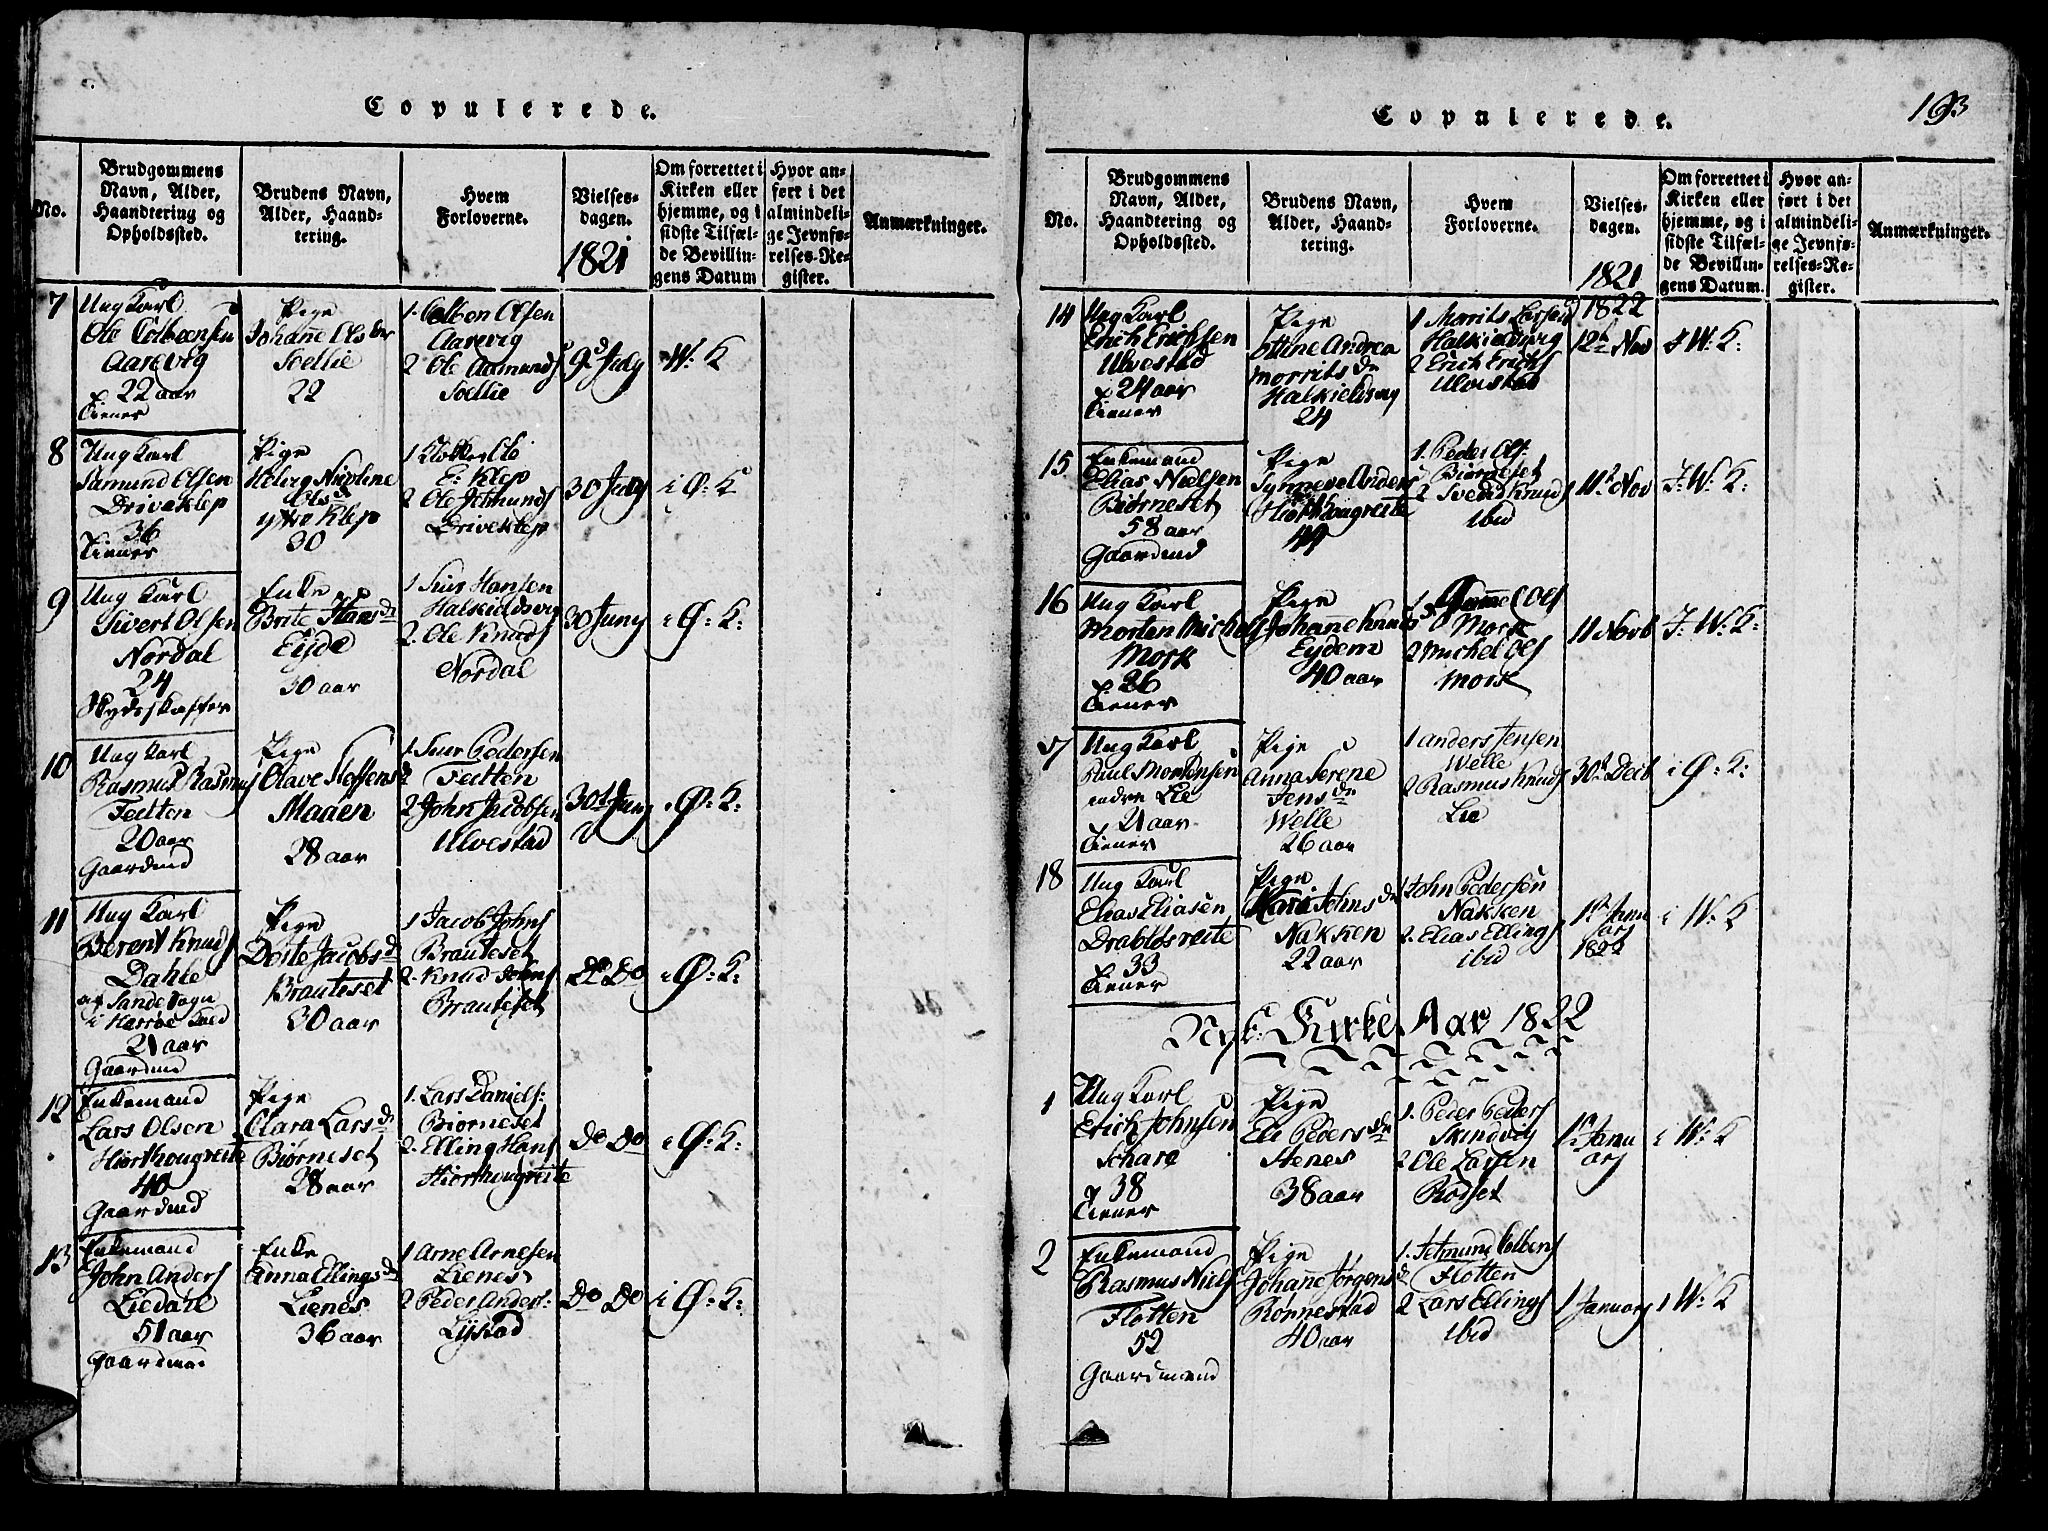 Copulerede.
No.
Brudgommens Navn, Alder, Haandtering og Opholdssted.
Brudens Navn, Alder, Haandtering.
Hvem Forloverne.
Vielsesdagen.
1821
Om forrettet i Kirken eller hjemme, og i sidste Tilfælde Bevillingens Datum
Hvor anført i det almindelige Jevnførelses-Register.
Anmærkninger.
7
Ung Karl
Ole Colbensen
Aarevig
22 aar
Tiener
Pige
Johanne Olsdr
Sollie
22
1. Colben Olsen
Aarevig
2 Ole Aamunds
Sollie
9d July
W: K
8
Ung Karl
Samund Olsen
Driveklep
36
Tiener
Pige
Helvig Nicoline
Olsd
ytre Klep
30
1 Klokker Ole
E: Klep
2 Ole Jetmunds
Driveklep
30 July
i Ø: K
9
Ung Karl
Sivert Olsen
Nordal
24
Skydsskaffer
Enke
Brite Hansdr
Eyde
30 aar
1 Siur Hansen
Halskieldsvig
2. Ole Knuds
Nordal
30 Juny
i Ø: K:
10
Ung Karl
Rasmus Rasmus
Fedten
20 aar
Gaardmd
Pige
Olave Steffensd
Maaen
28 aar
1. Siur Pedersen
Fedten
2 John Jacobsen
Ulvestad
30d Juny
i Ø: K:
11
Ung Karl
Berent Knuds
Dahle
af Sande Sogn
i Herröe Gield
21 aar
Gaardmd
Pige
Dorte Jacobsd
Brauteset
30 aar
1 Jacob Johns
Brauteset
2. Knud Johns
Brauteset
Do Do
i Ø: K:
12
Enkemand
Lars Olsen
Hiorthougreite
40
Gaardmd
Pige
Clara Larsd
Biørneset
28 aar
1. Lars Daniels:
Biorneset
2. Elling Hans
Hiorthougreite
Do Do
i Ø: K:
13
Enkemand
John Anders
Liedahl
51 aar
Gaardma:
Enke
Anna Ellingsd
Lienes
36 aar
1 Arne Arnesen
Lienes
2 Peder Anders:
Lystad
Do Do
i Ø: K:
Copulerede.
193
No.
Brudgommens Navn, Alder, Haandtering og Opholdssted.
Brudens Navn, Alder, Haandtering.
Hvem Forloverne.
Vielsesdagen.
1821
1822
Om forrettet i Kirken eller hjemme, og i sidste Tilfælde Bevillingens Datum.
Hvor anført i det almindelige Jevnførelses-Register.
Anmærkninger.
14
Ung Karl
Erich Erichsen
Ulvestad
24 aar
Tiener
Pige
Ottine Andrea
Morrits Dr
Halskieldsvig
24
1 Morrits Larsen
Halskieldsvig
2 Erich Erichs
Ulvestad
12t Nov
I W: K:
15
Enkemand
Elias Nielsen
Biørneset
58 aar
Gaardmd
Pige
Synneve Anders
Hiorthougreite
49
1. Peder Ols:
Biørneset
2 Svend Knuds
ibid
11t Nov
I: W: K:
16
Ung Karl
Morten Michels
Mork
26
Tiener
Pige
Johanne Knuds
Eydem
40 aar
1 Gammel Ols
Mork
2 Michel Ols
Mork
11 Novb
I: W: K:
17
Ung Karl
Paul Mortensen
indre Lie
21 aar
Tiener
Pige
Anna Serene
Jens dr
Welle
26 aar
1 Anders Jensen
Welle
2 Rasmus Knuds
Lie
30t Decb
i Ø: K:
18
Ung Karl
Elias Eliasen
Drabløsreite
33
Tiener
Pige
Kari Johnsdr
Nakken
22 aar
1 John Pedersen
Nakken
2. Elias Ellings
ibid
1t Janu
arj
1822
i W: K
Nyt Kirke Aar 1822
1
Ung Karl
Erich Johnsen
Schare
38
Tiener
Pige
Eli Pedersdr
Stenes
38 aar
1. Peder Peders
Skindvig
2 Ole Larsen
Rodset
1t Janu
arj
i W: K
2
Enkemand
Rasmus Niels
Flotten
52
Gaardmand
Pige
Johanne Jørgensd
Ronnestad
40 aar
1. Jetmund Colbens
Flotten
2 Lars Ellings
ibid
1 Januarj
i W: K